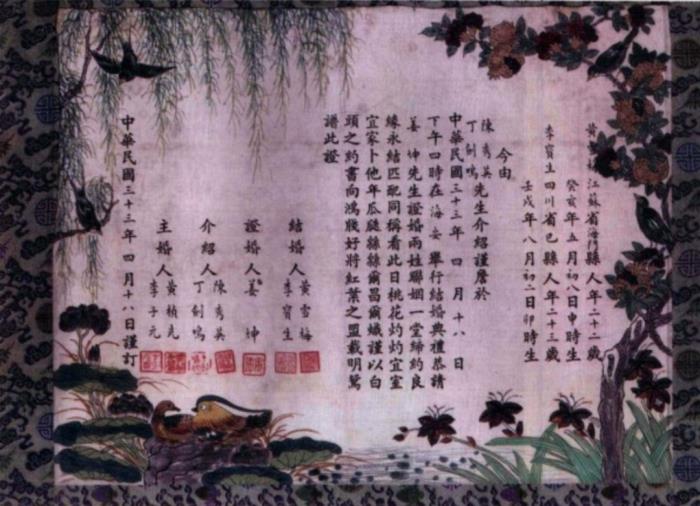 黃 江蘇省海門縣人年二十二歲
癸亥年五月初八日申時生
李寶生 四川省巴縣人年二十三歲
壬戌年八月初二日卯時生
今由
陳秀英
丁劍鳴 先生介紹謹詹於
中華民國三十三年 四 月 十八 日
下午四時在海安舉行結婚典禮恭請
姜 坤先生證婚兩姓聯姻一堂締約良
緣永結匹配同稱看此日桃花灼灼宜室
宜家卜他年瓜瓞緜緜爾昌爾熾謹以白
頭之約書向鴻牋好將紅葉之盟載明鴛
譜此證
結婚人 黃雪梅
李寶生
證婚人 姜 坤
介紹人 陳秀英
丁劍鳴
主婚人 黃楨
李子元
中華民國三十三年四月十八日謹訂